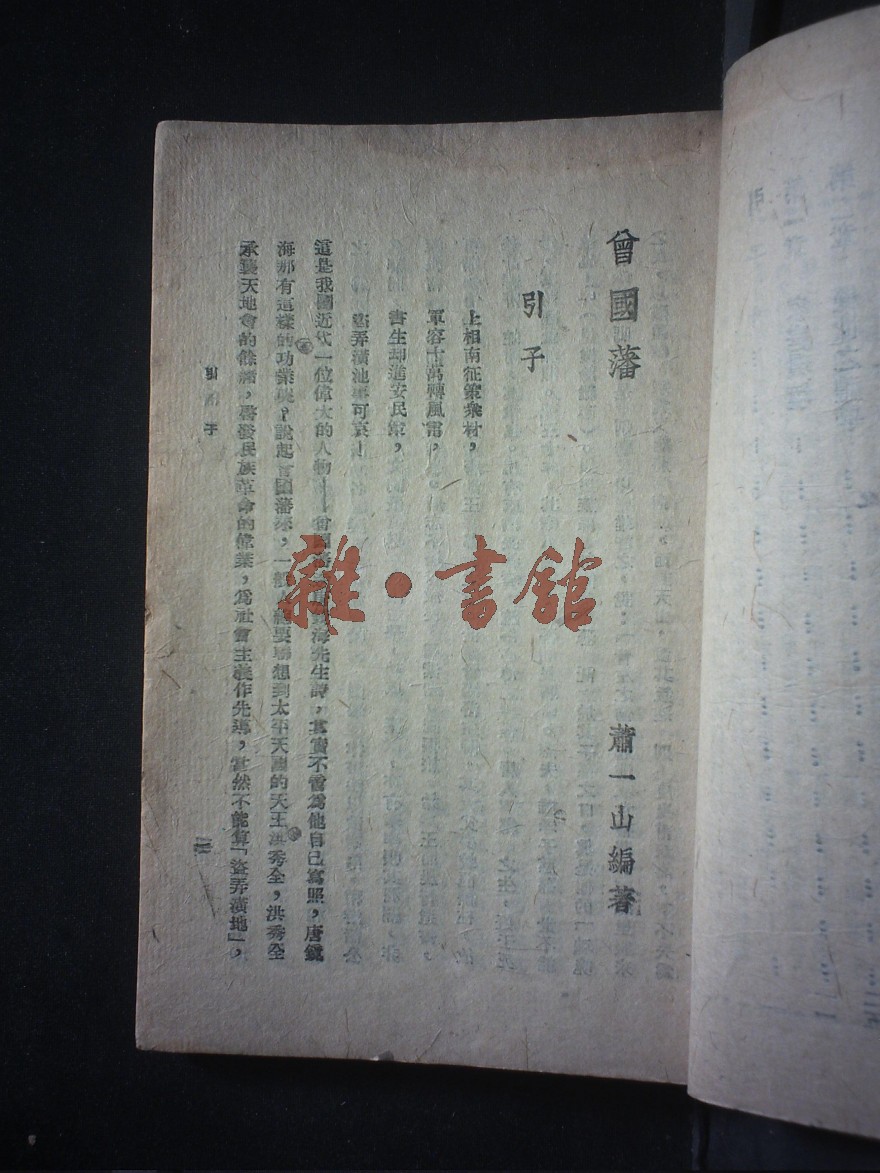 曾國藩
蕭一山編著
引子
上相南征策羣材，
軍容十萬轉風雷，
書生却進安民策，
盜弄潢池事可哀！
這是我國近代一位偉大的人物——曾國藩 海先生詩，其實不啻爲他自己寫照，唐鏡
海那有這樣的功業呢？說起曾國藩來，一般 總要聯想到太平天國的天王洪秀全，洪秀全
承襲天地會的餘緒，啓發民族革命的偉業，爲社會主義作先導，當然不能算「盜弄潢池」，
引子
一
雜·書館